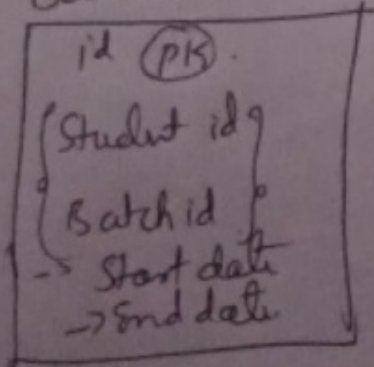 id PK
Student id
Batch id
-> Start date
-> End date